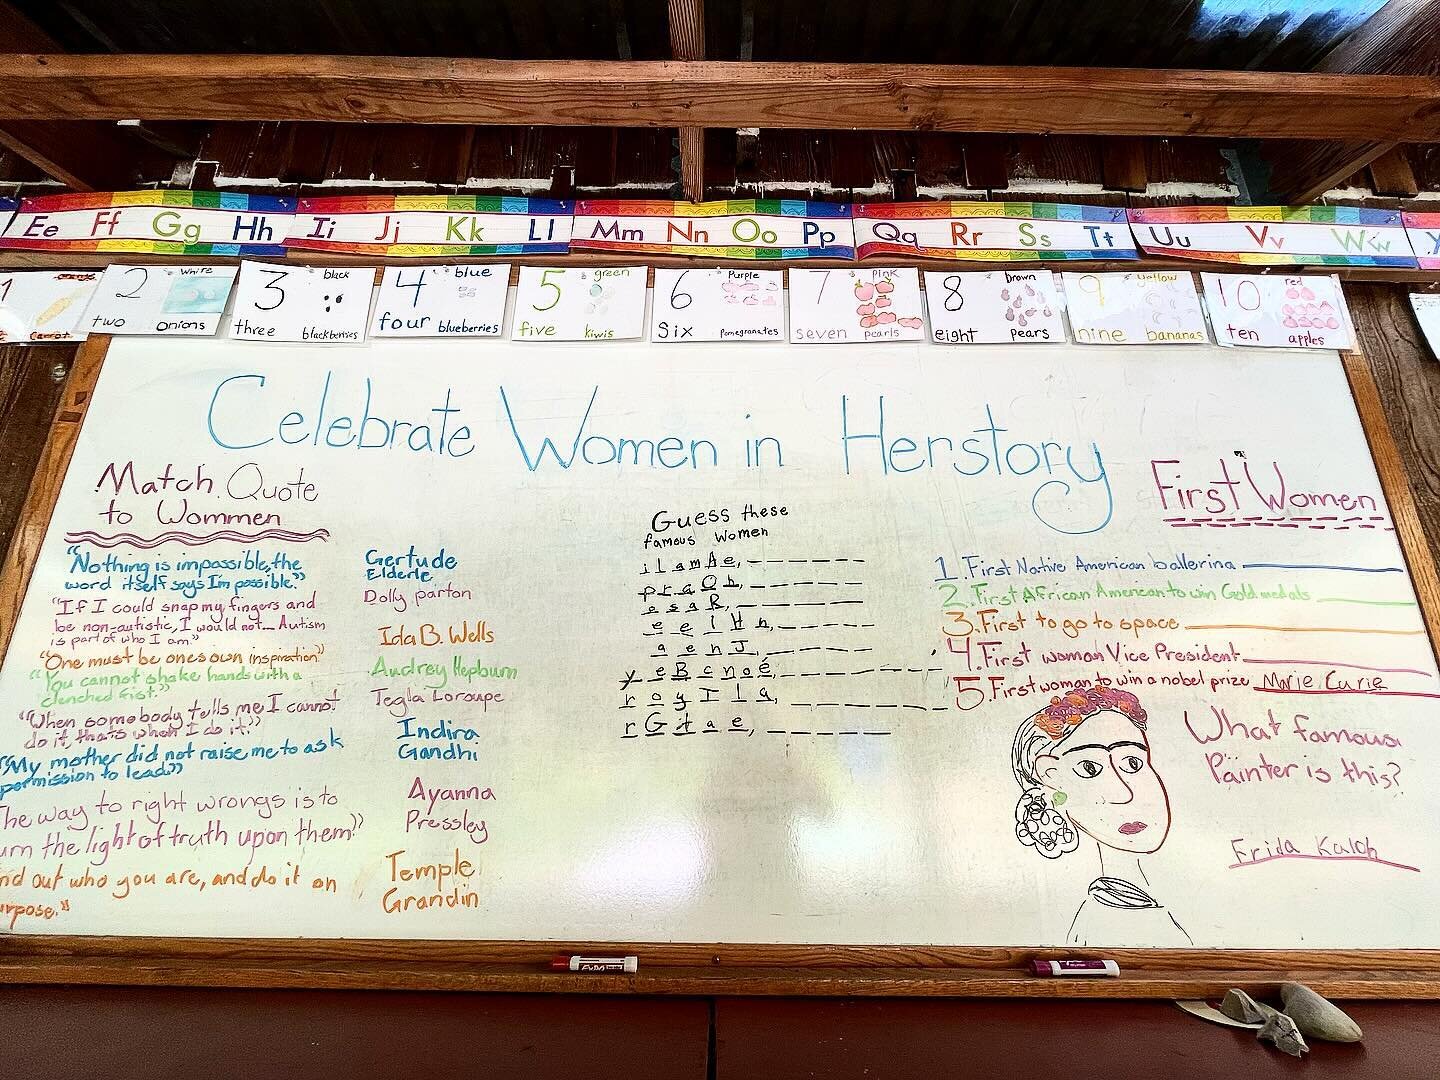 Ee Ff Gg Hh Ii Jj Kk Ll Mm Nn Oo Pp Qq Rr Ss Tt Uu Vv Ww
1 orange carrot
2 white two onions
3 black three blackberries
4 blue four blueberries
5 green five kiwis
6 Purple Six pomegranates
7 pink seven pearls
8 brown eight pears
9 yellow nine bananas
10 red ten apples
Celebrate Women in Herstory
Match Quote
to Wommen
"Nothing is impossible, the
word itself says I'm possible."
"If I could snap my fingers and
be non-autistic, I would not... Autism
is part of who I am."
"One must be ones own inspiration"
"You cannot shake hands with a
clenched fist."
"When somebody tells me I cannot
do it, thats when I do it."
"My mother did not raise me to ask
permission to lead."
he way to right wrongs is to
urn the light of truth upon them."
nd out who you are, and do it on
urpose."
Gertude
Elderle
Dolly parton
Ida B. Wells
Audrey Hepburn
Tegla Loroupe
Indira
Gandhi
Ayanna
Pressley
Temple
Grandin
Guess these
famous Women
ilamAe,
praOh,
osaR,
eelHn,
aenJ,
yeBcnoé,
royTla,
rGtae,
First Women
1. First Native American ballerina
2. First African American to win Gold medals
3. First to go to space
4. First woman Vice President
5. First woman to win a nobel prize Marie Curie
What famous
Painter is this?
Frida Kaloh
EXPO